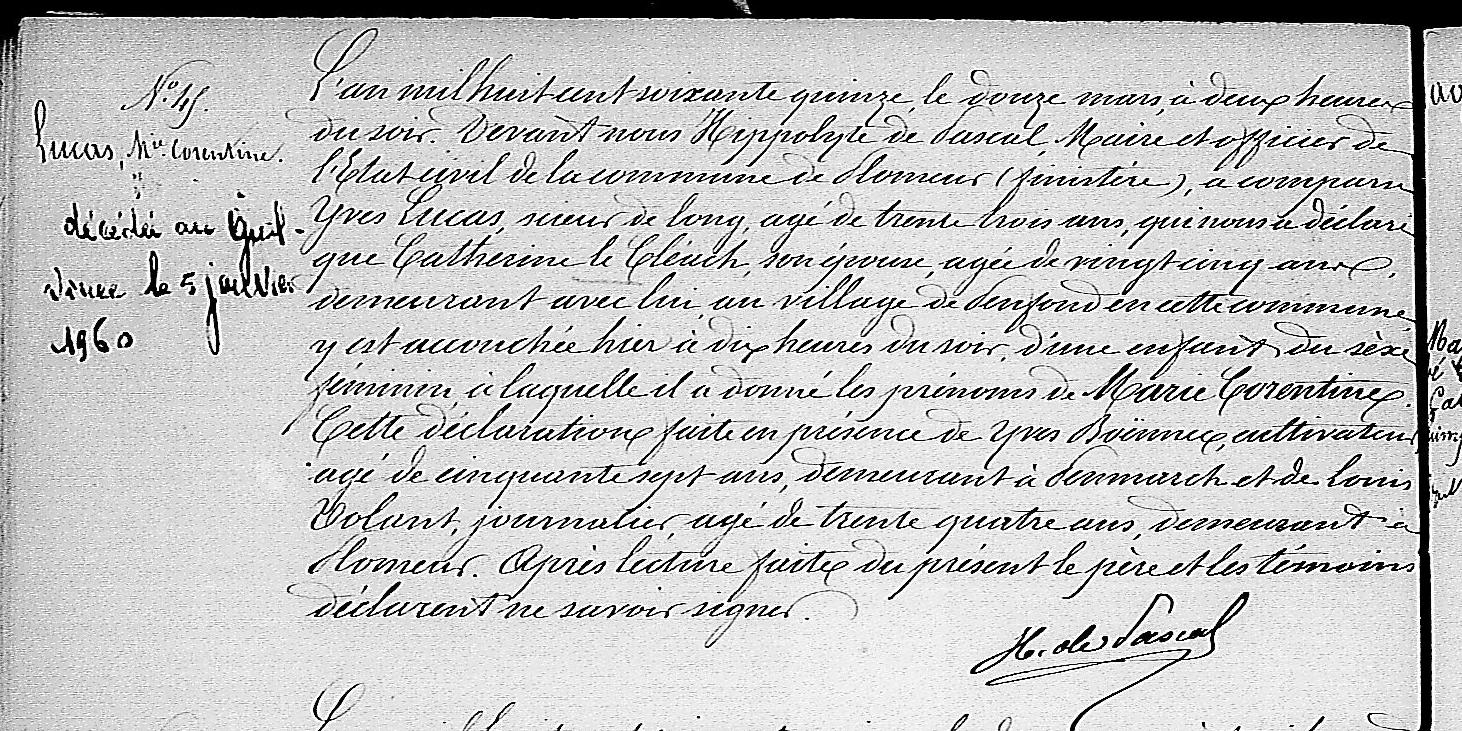 N° 45.
Lucas, Mie Corentine.
décédée au Guil-
vinec le 5 janvier
1960
L'an mil huit cent soixante quinze, le douze mars, à deux heures
du soir. Devant nous Hippolyte de Pascal, Maire et officier de
l'Etat civil de la commune de Plomeur (finistère), a comparu
Yves Lucas, scieur de long, agé de trente trois ans, qui nous a déclaré
que Catherine le Cléach, son épouse, agée de vingt cinq ans,
demeurant avec lui, au village de en cette commune,
y est accouchée hier à dix heures du soir, d'une enfant du sèxe
féminin, à laquelle il a donné les prénoms de Marie Corentine.
Cette déclaration faite en présence de Yves Boënnec, cultivateur,
agé de cinquante sept ans, demeurant à Penmarch et de Louis
Volant, journalier, agé de trente quatre ans, demeurant à
Plomeur. Après lecture faite du présent le père et les témoins
déclarent ne savoir signer.
H. de Pascal